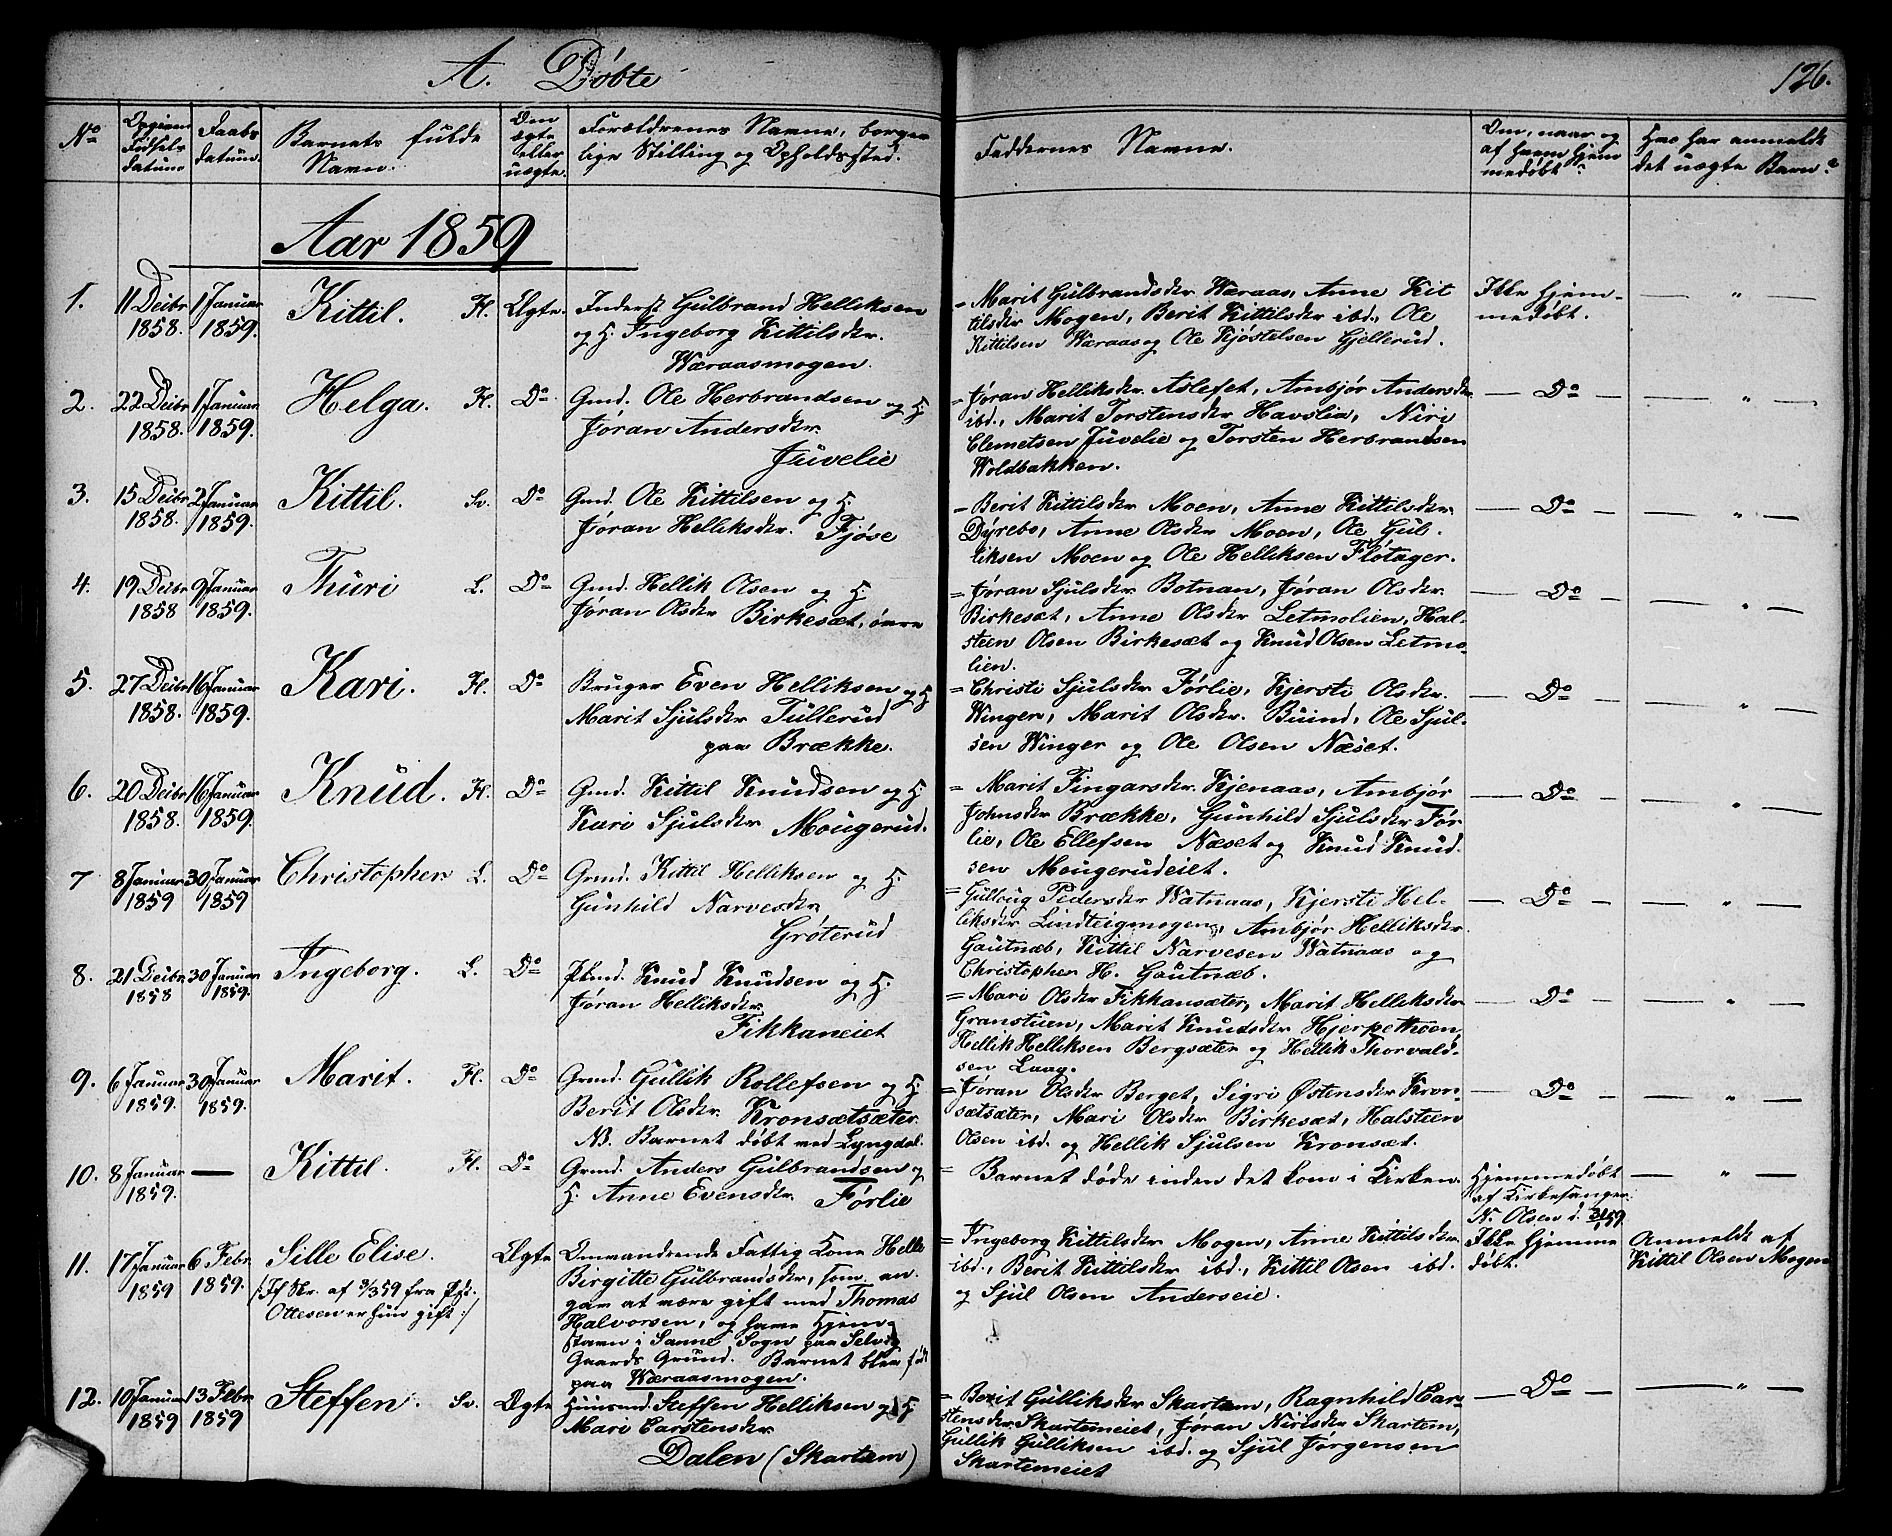 A. Døbte
126.
No
Opgiven Fødsels datum
Daabs datum.
Barnets fulde Navn.
Om ægte eller uægte.
Forældrenes Navne, borger
lige Stilling og Opholdssted.
Faddernes Navne.
Om, naar og af hvem hjem medøbt?
Hvo har anmeldt det uægte Barn?
Aar 1859
1. 11 Decbr 1858. 1 Januar 1859. Kittil. Fl. Ægte.
Inderst Gulbrand Helliksen
og H. Ingeborg Kittilsdtr.
Væraasmogen.
= Marit Gulbrandsdtr Væraas, Anne Kit
tilsdtr Mogen, Berit Kittilsdtr ibd., Ole
Kittilsen Væraas og Ole Kjøstelsen Gjellerud.
Ikke hjem-
medøbt.
2. 22 Decbr 1858. 1 Januar 1859. Helga. Fl. Do
Gmd. Ole Herbrandsen og H
Jøran Andersdtr.
Juvelie
= Jøran Helliksdtr Aslefet, Ambjør Andersdtr
ibd., Marit Torstensdtr Havslia, Niri
Clemetsen Juvelie og Torsten Herbrandsen
Woldbakken.
Do
3. 15 Decbr 1858. 2 Januar 1859. Kittil. Sv. Do
Gmd. Ole Kittilsen og H.
Jøran Helliksdtr. Fjøse
= Berit Kittilsdtr Moen, Anne Kittilsdtr
Dyrebo, Anne Olsdtr Moen, Ole Gul-
liksen Moen og Ole Helliksen Fløtager.
Do
4. 19 Decbr 1858 9 Januar 1859. Thuri L. Do
Gmd. Hellik Olsen og H.
Jøran Olsdtr Birkesæt, øvre
= Jøran Sjulsdtr Botnan, Jøran Olsdtr
Birkesæt, Anne Olsdtr Letmolien, Hal-
steen Olsen Birkesæt og Knud Olsen Letmo-
lien.
Do
5. 27 Decbr 1858. 16 Januar 1859. Kari. Fl. Do
Bruger Even Helliksen og H
Marit Sjulsdtr Tullerud
paa Brække.
= Christi Sjulsdtr Førlie, Kjersti Olsdtr
Winger, Marit Olsdtr. Buind, Ole Sjul-
sen Winger og Ole Olsen Næset.
Do
6. 20 Decbr 1858. 16 Januar 1859. Knud. Fl. Do
Gmd. Kittil Knudsen og H
Kari Sjulsdtr Mougerud.
= Marit Fingarsdtr. Kjenaas, Ambjør
Johnsdtr Brække, Gunhild Sjulsdtr Før-
lie, Ole Ellefsen Næset og Knud Knud-
sen Mougerudeiet.
Do
7 8 Januar 1859 30 Januar 1859 Christopher L. Do
Grmd. Kittil Helliksen og H.
Gunhild Narvesdtr
Grøterud
= Gulloug Pedersdtr Watnaas, Kjersti Hel-
liksdtr Lindteigmogen, Ambjør Helliksdtr
Gautnæb, Kittil Narvesen Watnaas og
Christopher H. Gautnæb.
Do
8. 21 Decbr 1858 30 Januar 1859. Ingeborg. L. Do
Plmd. Knud Knudsen og H.
Jøran Helliksdtr.
Fikkaneiet
= Mari Olsdtr Fikkansæter, Marit Helliksdtr
Granstuen, Marit Knudsdtr Hjerpethoen,
Hellik Helliksen Bergsæter og Hellik Thorvald-
sen Laag.
Do
9. 6 Januar 1859. 30 Januar 1859. Marit. Fl. Do
Grmd. Gullik Rollefsen og H.
Berit Olsdtr. Kronsætsæter.
NB. Barnet døbt ved Lyngdal.
= Jøran Olsdtr Berget, Sigri Østensdtr Kron-
sætsæter, Mari Olsdtr Birkesæt, Halsteen
Olsen ibd. og Hellik Sjulsen Kronsæt.
Do
10. 8 Januar 1859. — Kittil. Fl. Do
Grmd. Anders Gulbrandsen og
H. Anne Evensdtr. Førlie
= Barnet døde inden det kom i Kirken.
Hjemmedøbt
af Kirkesanger
N. Olsen d. 31/1 59.
11. 17 Januar 1859 6 Febr. 1859. Sille Elise. Ægte
(If Skr. af 3/3 59 fra Pst.
Ottesen er hun gift:/
Omvandrende Fattig Kone Helle
Birgitte Gulbrandsdtr, som an-
gav at være gift med Thomas
Halvorsen, og have Hjem
stavn i Sanne Sogn paa Selvig
Gaards Grund. Barnet blev født
paa Væraasmogen.
= Ingeborg Kittilsdtr Mogen, Anne Kittilsdtr
ibd., Berit Kittilsdtr ibd., Kittil Olsen ibd.
og Sjul Olsen Anderseie.
Ikke Hjemme
døbt.
Anmeldt af
Kittil Olsen Mogen
12. 10 Januar 1859 13 Febr 1859 Steffen. Sv. Ægte
Huusmd. Steffen Helliksen og H
Mari Carstensdtr.
Dalen (Skartum)
= Berit Gulliksdtr Skartum, Ragnhild Car-
stensdtr Skartemeiet, Jøran Nirisdtr Skartem,
Gullik Gulliksen ibd. og Sjul Jørgensen
Skartemeiet
Do